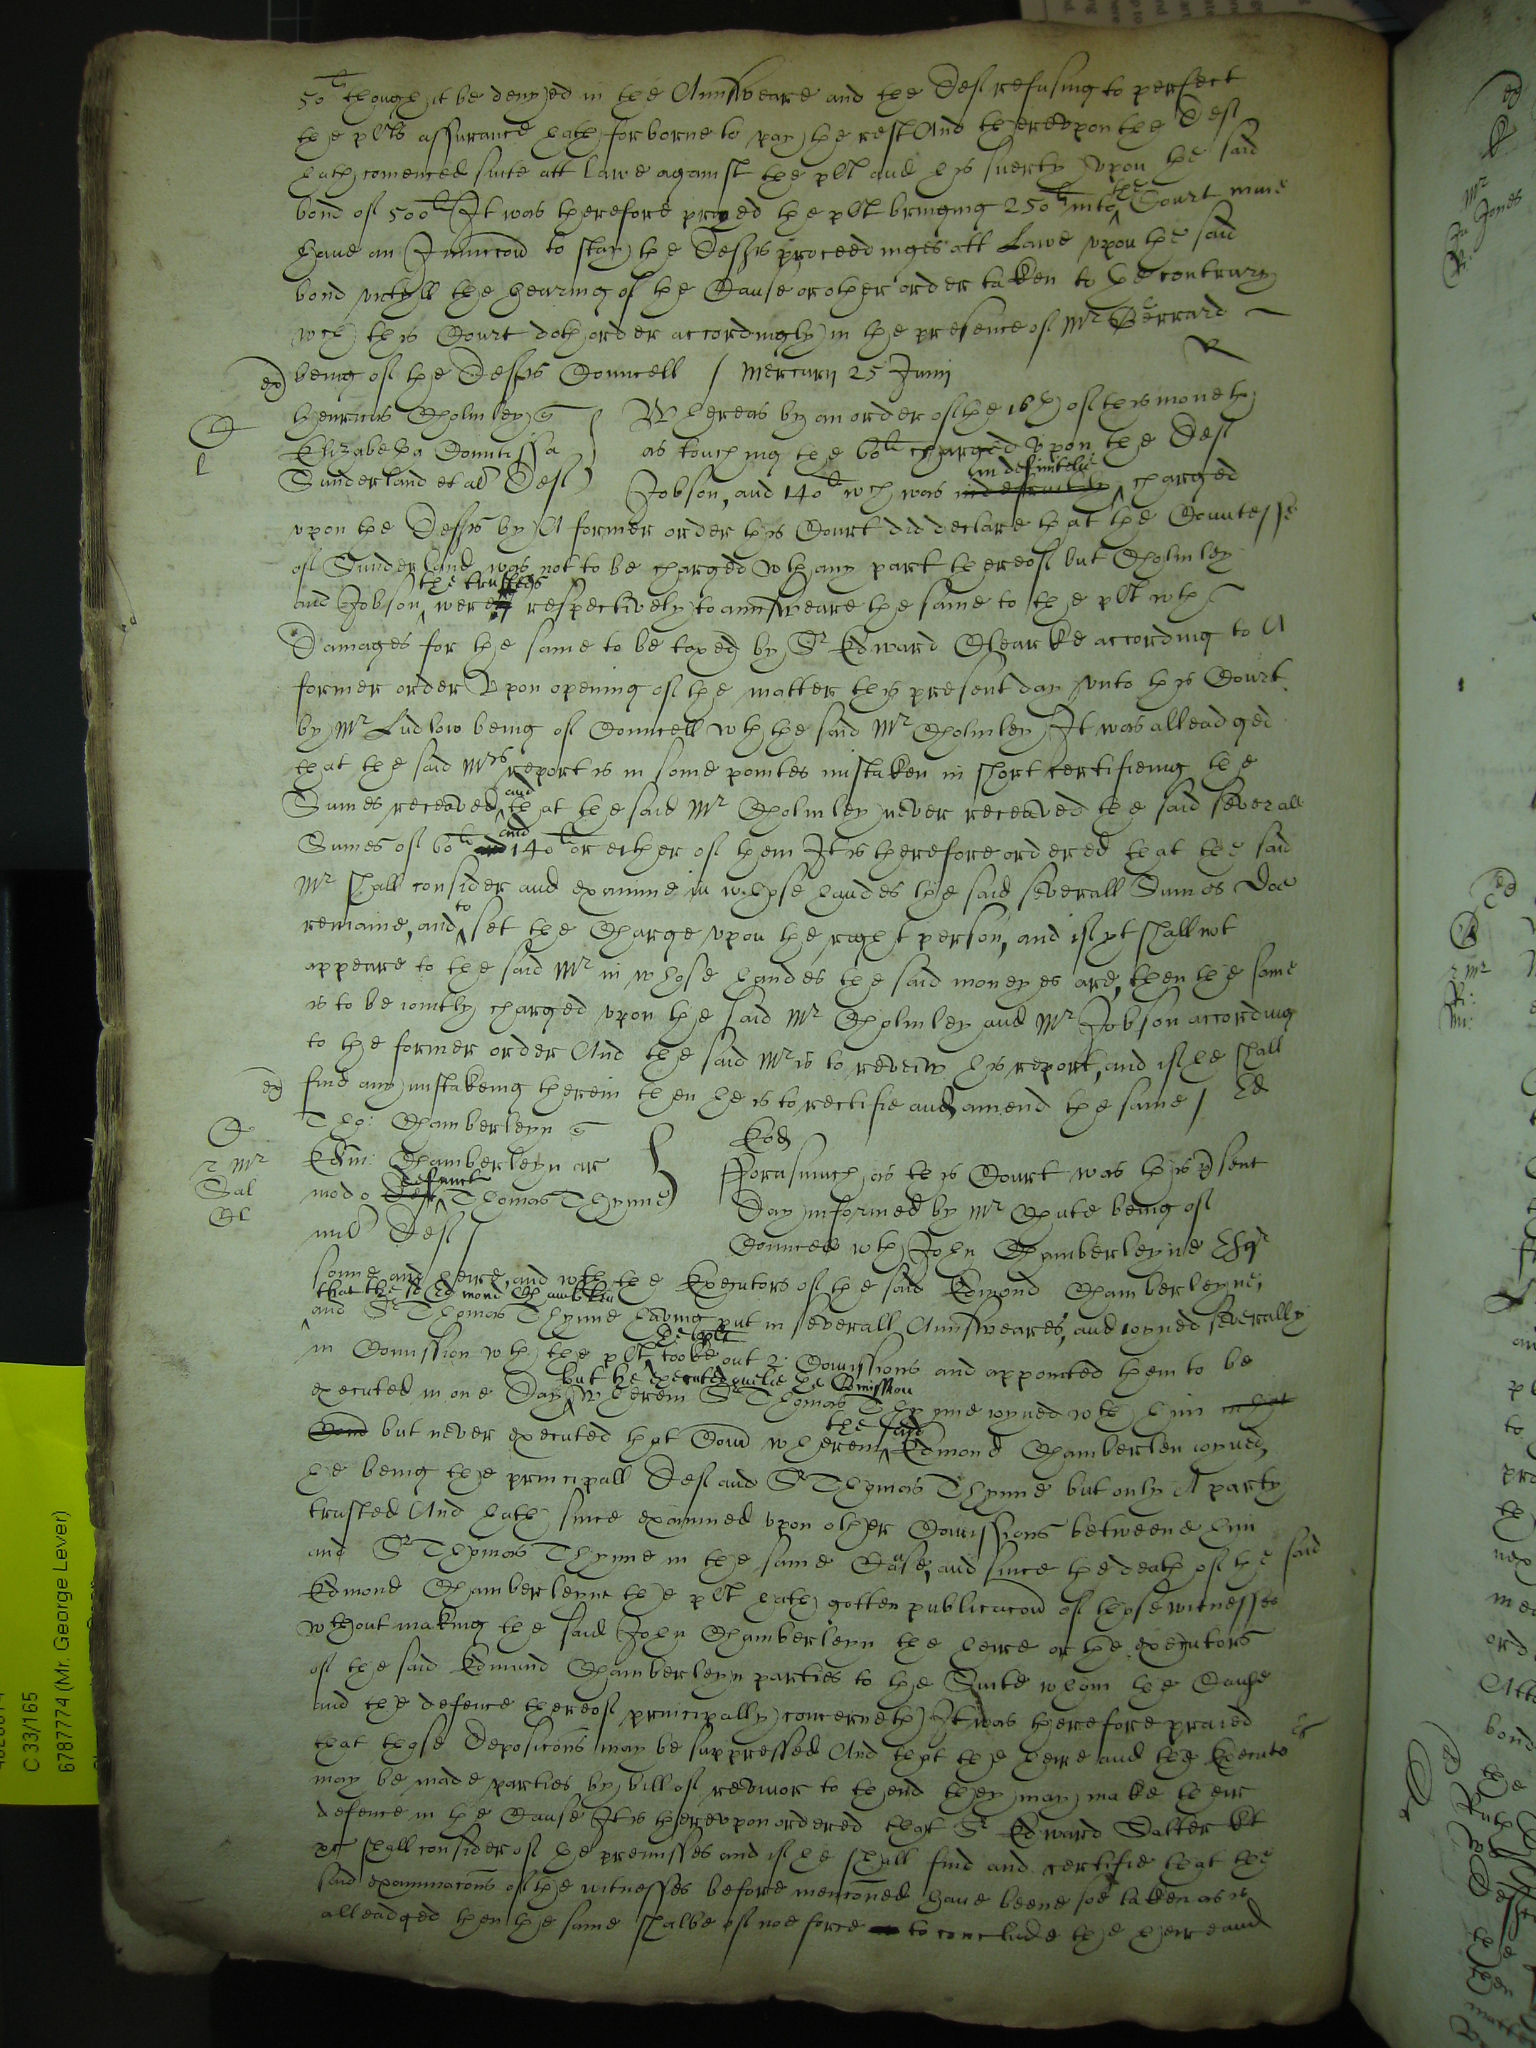 50li though it be denyed in the Aunsweare and the Def refusing to perfect
the plts assurance hath forborne to pay the rest And therevpon the Def
hath comenced suite att Lawe against the plt and his suerty vpon the said
bond of 500li It was therefore prayed the plt bringing 250li into the Court maie
haue an Iniuncon to stay the Defts proceedinges att Lawe vpon the said
bond vntill the hearing of the Cause or other order taken to the contrary
wch this Court doth order accordingly in the presence of Mr Gerrard
being of the Defts Councell / Mercurij 25 Junij
R
Henricus Cholmley
Elizabetha Comitissa
Sunderland et al Def
Whereas by an order of the 16th of this moneth
as touching the 60li charged vpon the Def
Jobson, and 140li wch was indefinitely indefinitelie charged
vpon the Defts by A former order this Court did declare that the Countesse
of Sunderland was not to be charged wth any part thereof but Cholmley
and Jobson the trustees were respectively to aunsweare the same to the plt wth
Damages for the same to be taxed by Sr Edward Clearke according to A
former order Vpon opening of the matter this present day vnto this Court
by Mr Ludlow being of Councell wth the said Mr Cholmley It was alleadged
that the said Mrs report is in some pointes mistaken in short certifieing the
Sumes receaved, and that the said Mr Cholmley never receaved the said severall
Sumes of 60li and 140li or either of them It is therefore ordered that the said
Mr shall consider and examine in whose handes the said severall Sumes doe
remaine, and to set the Charge vpon the right person, and if yt shall not
appeare to the said Mr in whose handes the said moneyes are, then the same
is to be iointly charged vpon the said Mr Cholmley and Mr Jobson according
to the former order And the said Mr is to reveiw his report, and if he shall
find any mistakeing therein then he is to rectifie and amend the same /
Tho: Chamberleyn
Edm: Chamberleyn ar
modo defunct Thomas Thynne
mil Def
2 Mr
Sal
Eod
Forasmuch as this Court was this psent
Day informed by Mr Chute being of
Councell wth John Chamberleyne Esqr
sonne and heire, and wth the Executors of the said Edmond Chamberleyne,
that the sd Edmond Chamberlen
and Sr Thomas Thynne having put in severall Aunsweares, and ioyned severally
in Comission wth the plt, he plt tooke out 2 Comissions and appointed them to be
but he executed onelie the Comission
executed in one Day, wherein Sr Thomas Thynne ioyned wth him in that
Com but never executed that Com wherein the said Edmond Chamberlen ioyned,
he being the principall Def and Sr Thomas Thynne but only A party
trusted And hath since examined vpon other Comissions betweene him
and Sr Thomas Thynne in the same Case, and since the death of the said
Edmond Chamberleyne the plt hath gotten publicacon of those witnesses
wthout making the said John Chamberleyn the heire or the executors
of the said Edmund Chamberleyn parties to the Suite whom the Cause
and the defence thereof principally concerneth It was therefore praied
that those Deposicons may be suppressed And that the heire and the Executors
may be made parties by bill of revivor to thend they may make their
defence in the Cause It is therevpon ordered that Sr Edward Salter kt
shall consider of the premisses and if he shall find and certifie that the
said examinacons of the witnesses before mencioned haue beene soe taken as is
alleadged then the same shalbe of noe force to conclude the heire and
C 33/165
6787774 (Mr. George Lever)
Mr
Jones